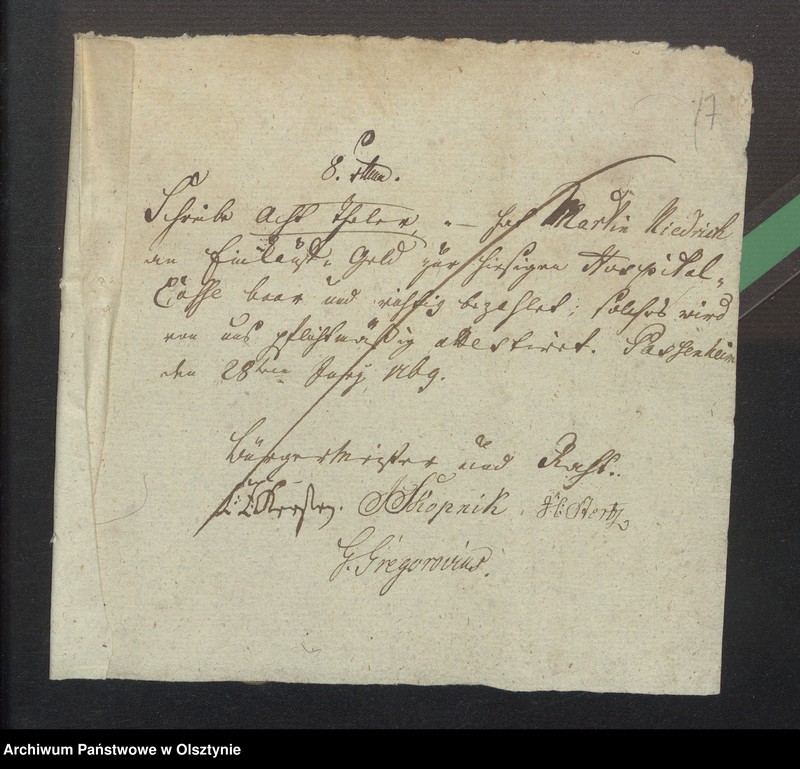 17
8. rthlr.
Schreibe Acht Thaler, hat Martin Niedrich
an Einkaufs-Geld zur hiesigen Hospital-
Casse baar und richtig bezahlet; solches wird
von uns pflichtmäßig attestiret. Passenheim
den 28ten
Bürgermeister und Rath.
Skopnik
G. Gregorovius.
Archiwum Państwowe w Olsztynie